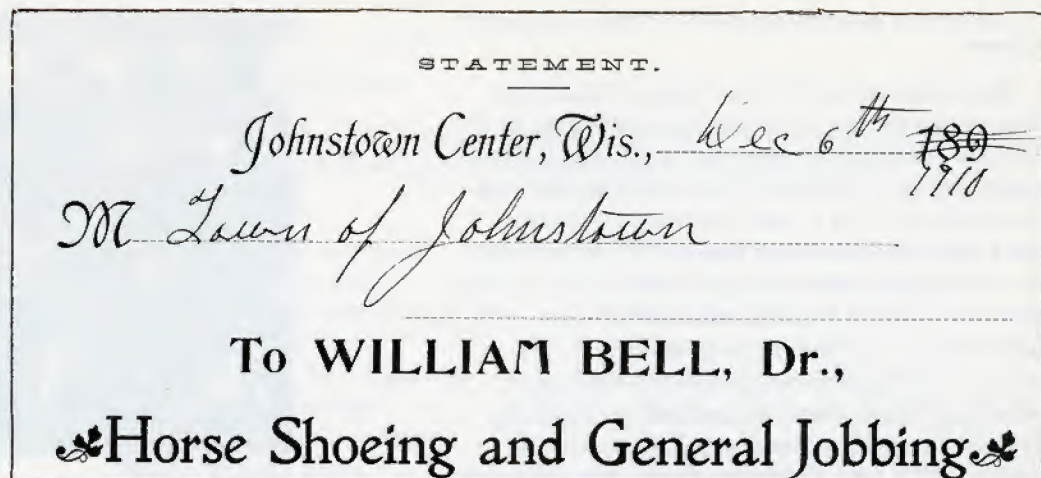 STATEMENT.
Johnstown Center, Wis., Dec 6th 189
1910
M Town of Johnstown
To WILLIAM BELL, Dr.,
Horse Shoeing and General Jobbing